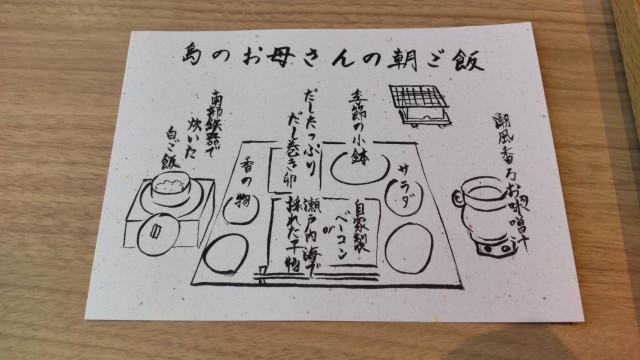 島のお母さんの朝ご飯
潮風香るお味噌汁
季節の小鉢
だしたっぷり
だし巻き卵
南部鉄器で
炊いた
白ご飯
サラダ
香の物
自家製
ベーコン
or
瀬戸内海で
採れた干物